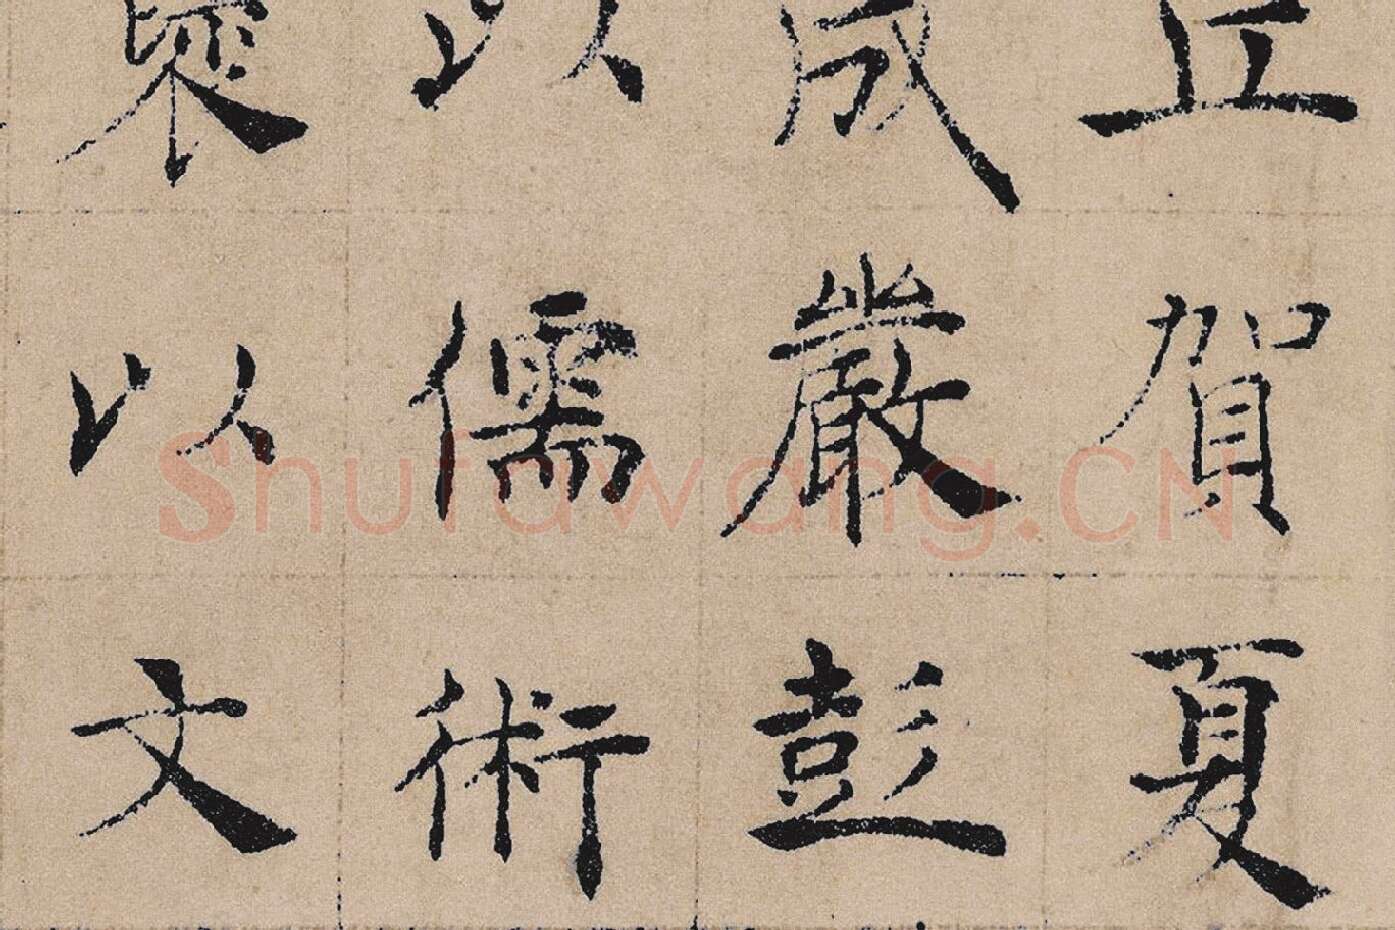 丘賀夏
成嚴彭
以儒術
以文
Shufawang.CN